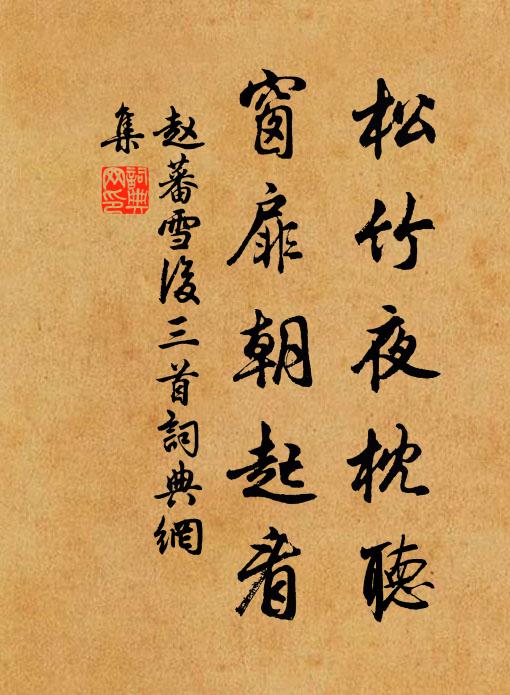 松竹夜枕聽
窗扉朝起看
趙蕃雪後三首詞典網
集
詞典
网印